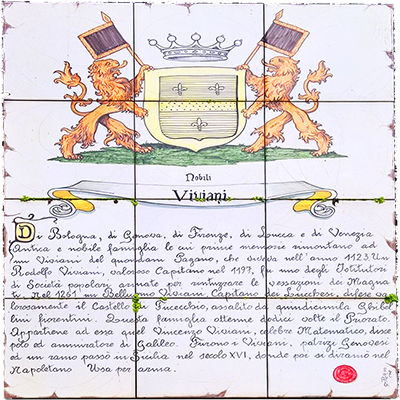 Nobili
Viviani
Di Bologna, di Genova, di Firenze, di Lucca e di Venezia
Antica e nobile famiglia le cui prime memorie rimontano ad
un Viviani del quondam Pagano, che viveva nell'anno 1123. Un
Rodolfo Viviani, valoroso Capitano nel 1197, fu uno degli Istitutori
di Società popolari armate per rintuzzare le vessazioni dei Magna
ti. Nel 1261 un Bellincino Viviani Capitano dei Lucchesi, difese va
lorosamente il Castello di Fucecchio, assalito da quindicimila Ghibel
lini fiorentini. Questa famiglia ottenne dodici volte il Priorato.
Appartiene ad essa quel Vincenzo Viviani, celebre Matematico, disce
polo ed ammiratore di Galileo. Furono i Viviani, patrizi Genovesi
ed un ramo passò in Sicilia nel secolo XVI, donde poi si diramò nel
Napoletano Usa per arma.